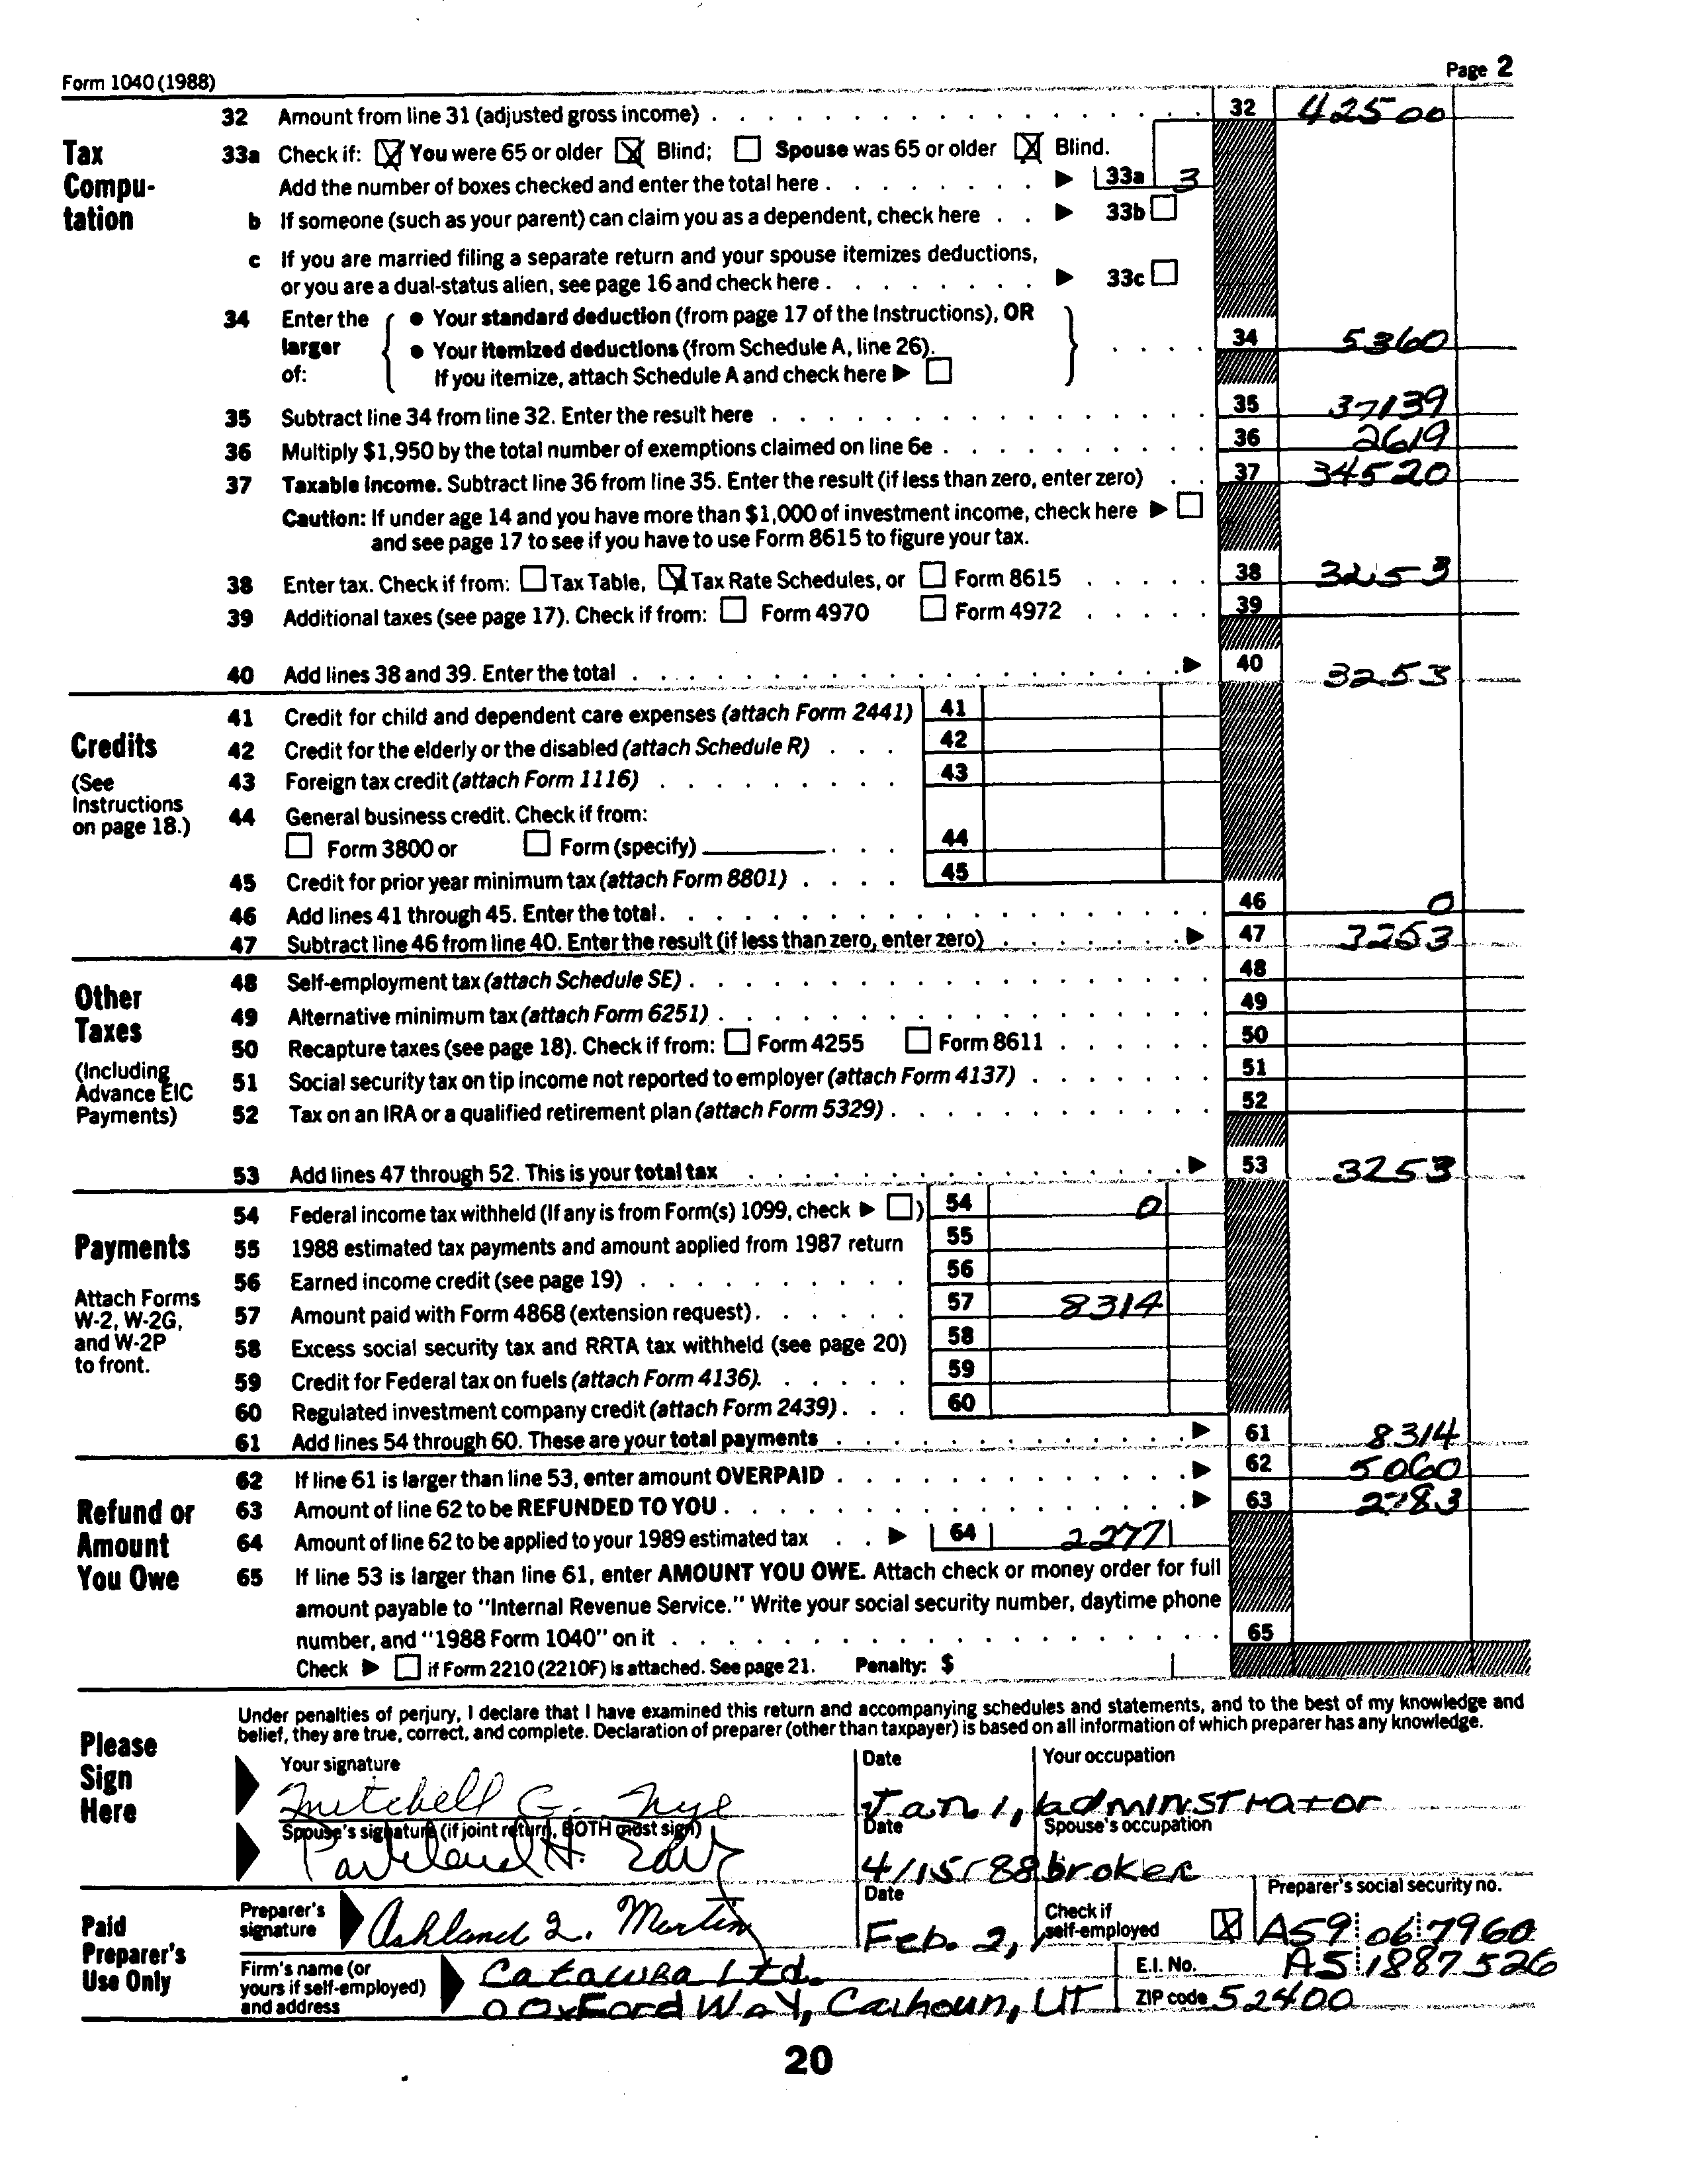 Form 1040 (1988) Page 2
Tax Computation
32 Amount from line 31 (adjusted gross income) 32 42500
33a Check if: ☒ You were 65 or older ☒ Blind; ☐ Spouse was 65 or older ☒ Blind.
Add the number of boxes checked and enter the total here ▶ 33a 3
b If someone (such as your parent) can claim you as a dependent, check here ▶ 33b ☐
c If you are married filing a separate return and your spouse itemizes deductions,
or you are a dual-status alien, see page 16 and check here ▶ 33c ☐
34 Enter the larger of:
● Your standard deduction (from page 17 of the Instructions), OR
● Your itemized deductions (from Schedule A, line 26).
If you itemize, attach Schedule A and check here ▶ ☐
34 5360
35 Subtract line 34 from line 32. Enter the result here 35 37139
36 Multiply $1,950 by the total number of exemptions claimed on line 6e 36 2619
37 Taxable income. Subtract line 36 from line 35. Enter the result (if less than zero, enter zero) 37 34520
Caution: If under age 14 and you have more than $1,000 of investment income, check here ▶ ☐
and see page 17 to see if you have to use Form 8615 to figure your tax.
38 Enter tax. Check if from: ☐ Tax Table, ☒ Tax Rate Schedules, or ☐ Form 8615 38 3253
39 Additional taxes (see page 17). Check if from: ☐ Form 4970 ☐ Form 4972 39
40 Add lines 38 and 39. Enter the total ▶ 40 3253
Credits
(See Instructions on page 18.)
41 Credit for child and dependent care expenses (attach Form 2441) 41
42 Credit for the elderly or the disabled (attach Schedule R) 42
43 Foreign tax credit (attach Form 1116) 43
44 General business credit. Check if from:
☐ Form 3800 or ☐ Form (specify) 44
45 Credit for prior year minimum tax (attach Form 8801) 45
46 Add lines 41 through 45. Enter the total 46 0
47 Subtract line 46 from line 40. Enter the result (if less than zero, enter zero) ▶ 47 3253
Other Taxes
(Including Advance EIC Payments)
48 Self-employment tax (attach Schedule SE) 48
49 Alternative minimum tax (attach Form 6251) 49
50 Recapture taxes (see page 18). Check if from: ☐ Form 4255 ☐ Form 8611 50
51 Social security tax on tip income not reported to employer (attach Form 4137) 51
52 Tax on an IRA or a qualified retirement plan (attach Form 5329) 52
53 Add lines 47 through 52. This is your total tax ▶ 53 3253
Payments
Attach Forms W-2, W-2G, and W-2P to front.
54 Federal income tax withheld (If any is from Form(s) 1099, check ▶ ☐) 54 0
55 1988 estimated tax payments and amount applied from 1987 return 55
56 Earned income credit (see page 19) 56
57 Amount paid with Form 4868 (extension request) 57 8314
58 Excess social security tax and RRTA tax withheld (see page 20) 58
59 Credit for Federal tax on fuels (attach Form 4136) 59
60 Regulated investment company credit (attach Form 2439) 60
61 Add lines 54 through 60. These are your total payments ▶ 61 8314
Refund or Amount You Owe
62 If line 61 is larger than line 53, enter amount OVERPAID ▶ 62 5060
63 Amount of line 62 to be REFUNDED TO YOU ▶ 63 2783
64 Amount of line 62 to be applied to your 1989 estimated tax ▶ 64 2277
65 If line 53 is larger than line 61, enter AMOUNT YOU OWE. Attach check or money order for full
amount payable to "Internal Revenue Service." Write your social security number, daytime phone
number, and "1988 Form 1040" on it 65
Check ▶ ☐ if Form 2210 (2210F) is attached. See page 21. Penalty: $
Please Sign Here
Under penalties of perjury, I declare that I have examined this return and accompanying schedules and statements, and to the best of my knowledge and
belief, they are true, correct, and complete. Declaration of preparer (other than taxpayer) is based on all information of which preparer has any knowledge.
Your signature Date Your occupation
Mitchell G. Nye Jan. 1, administrator
Spouse's signature (if joint return, BOTH must sign) Date Spouse's occupation
H. 4/15/88 broker
Paid Preparer's Use Only
Preparer's signature Date Check if self-employed ☒ Preparer's social security no.
Ashland Q. Martin Feb. 2, A59 06 7960
Firm's name (or yours if self-employed) and address E.I. No. A5 1887526
Catawba Ltd.
0 Oxford Way, Calhoun, UT ZIP code 52400
20